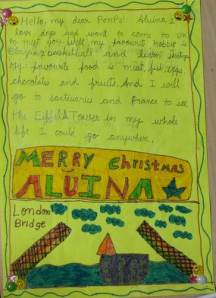 Hello, my dear PenPal Aluina I
love dogs and want to come to UK
to meet you. Well, my favourite hobbie is
Playing basketball and
My favourite food is meat, fish, eggs
chocolates and fruits. And I will
go to santuaries and France to see
the Eiffel Tower in my whole
life I could go anywhere.
MERRY Christmas
ALUINA
London
Bridge